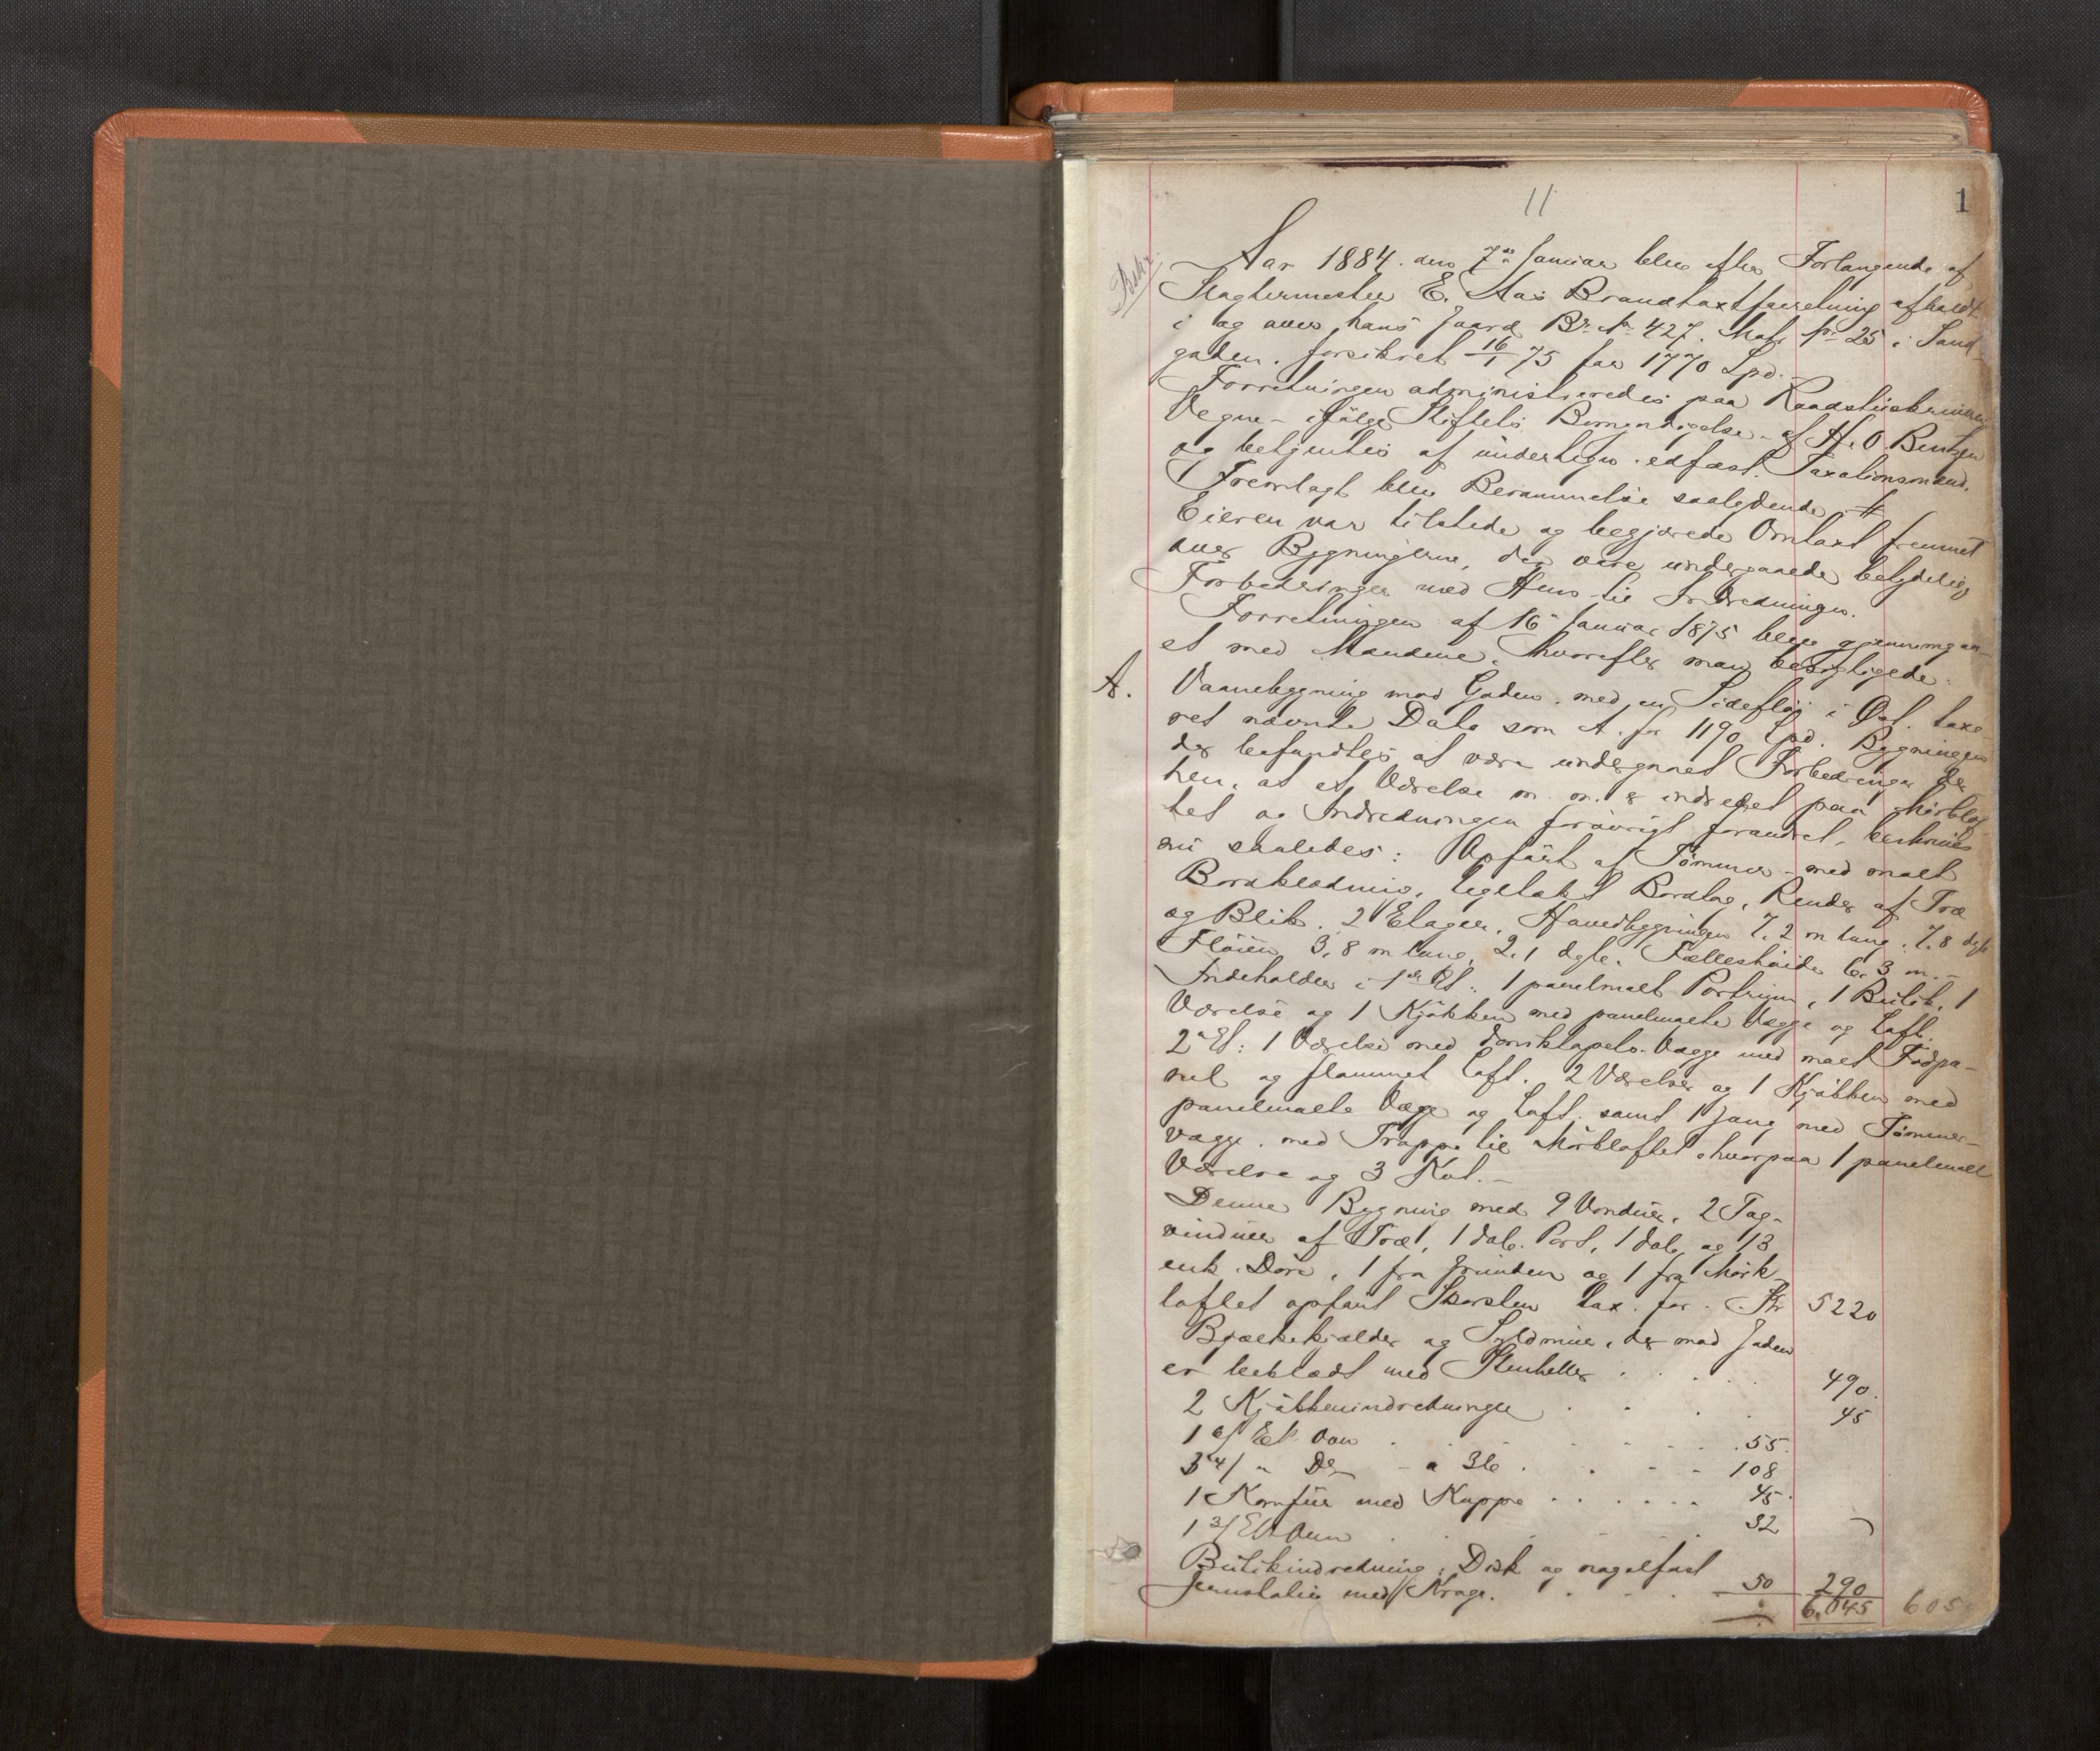 1
11
Beskr.
Aar 1884. den 7de Januar blev efter Forlangende af
Slagtermester E. Aas Brandtaxtforretning afholdt
i og over hans Gaard Br. No 427. Matr. No 25 i Sand-
gaden, forsikret 16/1 75 for 1770 Spd. -
Forretningen administreredes paa Raadstueskriverens
Vegne - ifølge Stiftets Bemyndigelse - af H. O. Bentzen
og betjentes af undertegn. edfæst. Taxationsmænd.
Fremlagt blev Berammelse saalydende #
Eieren var tilstede og begjærede Omtaxt fremmet
over Bygningerne, der vare undergaaede betydelig
Forbedringer med Hensn. til Indredningen.
Forretningen af 16de Januar 1875 blev gjennemgaa-
et med Mændene, hvorefter man besigtigede:
A. Vaanebygning mod Gaden med en Sidefløi i Øst. taxe-
ret nævnte Dato som A. for 1190 Spd. Bygningen
der befandtes at være undergaaet Forbedringer der-
hen, at et Værelse m. m. er indredet paa Mørklof-
tet og Indredningen forøvrigt forandret, beskrives
nu saaledes: Opført af Tømmer med malt
Bordklædning, tegllakt Bordtag, Render af Træ
og Blik. 2 Etager. Hovedbygningen 7.2 m lang. 7.8 dyb
Fløien 3.8 m lang, 2.1 dyb. Fælleshøide 6.3 m. -
Indeholder i 1ste Et: 1 panelmalt Portrum, 1 Butik, 1
Værelse og 1 Kjøkken med panelmalte Vægge og Loft.
2den Et: 1 Værelse med Vægge med malt Fodpa-
nel og flammet Loft. 2 Værelser og 1 Kjøkken med
panelmalte Vægge og Loft, samt 1 Gang med Tømmer-
vægge, med Trappe til Mørkloftet, hvorpaa 1 panelmalt
Værelse og 3 Kot. -
Denne Bygning med 9 Vinduer, 2 Tag-
vinduer af Træ, 1 dob. Port, 1 dob. og 13
enk. Døre, 1 fra Grunden og 1 fra Mørk-
loftet opført Skorsten tax. for. Kr 5220
Bjælkekjælder og Syldmur, der mod Gaden
er beklædt med Stenheller . . . . . 490.
2 Kjøkkenindretninger . . . . 45
1 Et. Ovn . . . . . . 55.
3 4/ " Do - a 36 . . . . 108
1 Komfur med Kappe . . . . . . 45.
1 3/ Et. Ovn . . . . . . 32
Butikindretning: Disk og nagelfast
med Krage. . . . . 50 290
6.045 605